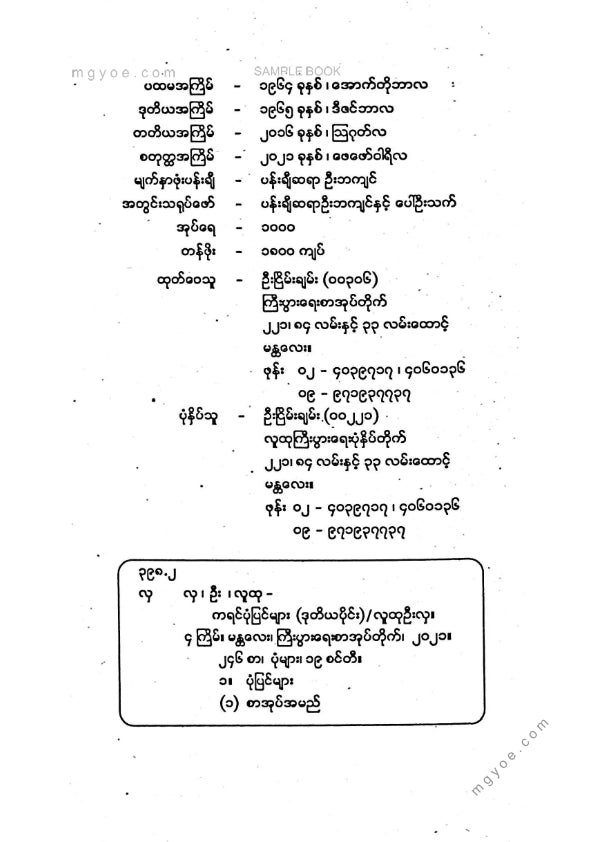 mgyoe.com SAMPLE BOOK
ပထမအကြိမ် - ၁၉၆၄ ခုနှစ်၊ အောက်တိုဘာလ
ဒုတိယအကြိမ် - ၁၉၆၅ ခုနှစ်၊ ဒီဇင်ဘာလ
တတိယအကြိမ် - ၂၀၁၆ ခုနှစ်၊ ဩဂုတ်လ
စတုတ္ထအကြိမ် - ၂၀၂၁ ခုနှစ်၊ ဖေဖော်ဝါရီလ
မျက်နှာဖုံးပန်းချီ - ပန်းချီဆရာ ဦးဘကျင်
အတွင်းသရုပ်ဖော် - ပန်းချီဆရာဦးဘကျင်နှင့် ပေါ်ဦးသက်
အုပ်ရေ - ၁၀၀၀
တန်ဖိုး - ၁၈၀၀ ကျပ်
ထုတ်ဝေသူ - ဦးငြိမ်းချမ်း (၀၀၃၀၆)
ကြီးပွားရေးစာအုပ်တိုက်
၂၂၁၊ ၈၄ လမ်းနှင့် ၃၃ လမ်းထောင့်
မန္တလေး။
ဖုန်း ၀၂ - ၄၀၃၉၇၁၇ ၊ ၄၀၆၀၁၃၆
၀၉ - ၉၇၁၉၃၇၇၃၇
ပုံနှိပ်သူ - ဦးငြိမ်းချမ်း (၀၀၂၂၁)
လူထုကြီးပွားရေးပုံနှိပ်တိုက်
၂၂၁၊ ၈၄ လမ်းနှင့် ၃၃ လမ်းထောင့်
မန္တလေး။
ဖုန်း ၀၂ - ၄၀၃၉၇၁၇ ၊ ၄၀၆၀၁၃၆
၀၉ - ၉၇၁၉၃၇၇၃၇
၃၉၈.၂
လှ လှ ၊ ဦး ၊ လူထု -
ကရင်ပုံပြင်များ (ဒုတိယပိုင်း)/လူထုဦးလှ။
၄ ကြိမ်။ မန္တလေး၊ ကြီးပွားရေးစာအုပ်တိုက်၊ ၂၀၂၁။
၂၄၆ စာ၊ ပုံများ၊ ၁၉ စင်တီ။
၁။ ပုံပြင်များ
(၁) စာအုပ်အမည်
mgyoe.com